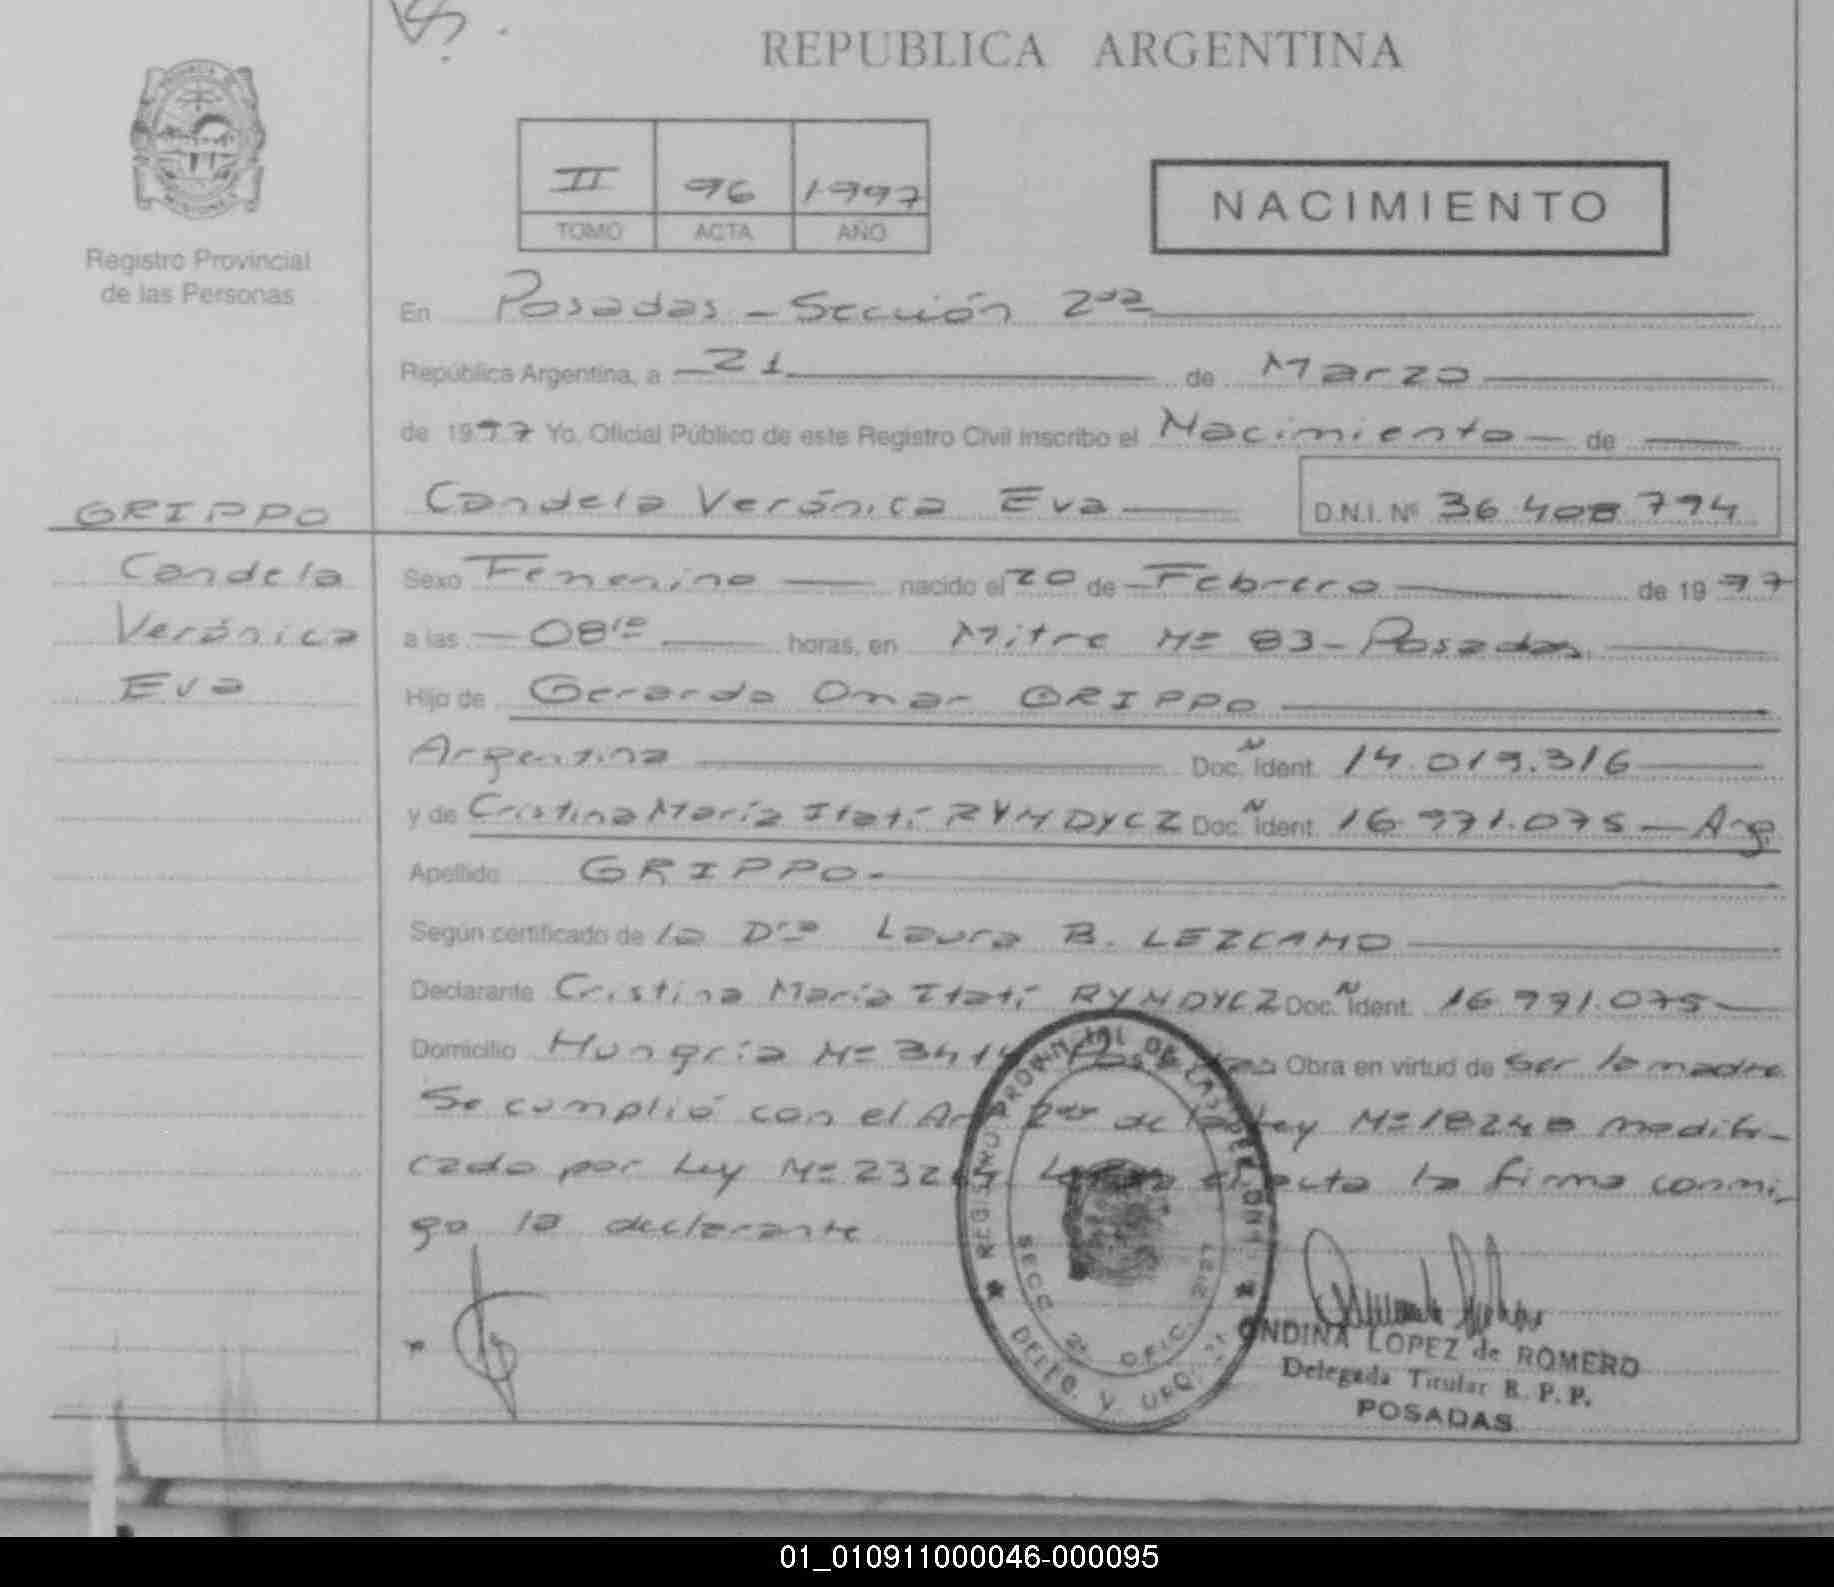 REPUBLICA ARGENTINA
II 96 1997
TOMO ACTA AÑO
NACIMIENTO
Registro Provincial
de las Personas
En Posadas - Sección 2da
República Argentina, a 21 de Marzo
de 1997 Yo, Oficial Público de este Registro Civil inscribo el Nacimiento de
Candela Verónica Eva D.N.I. Nº 36 408 794
GRIPPO
Candela
Verónica
Eva
Sexo Femenino nacido el 20 de Febrero de 1997
a las 08 horas, en Mitre Nº 83 - Posadas
Hijo de Gerardo Omar GRIPPO
Argentina Doc. Ident. 14.019.316
y de Cristina María Itatí RYNDYCZ Doc. Ident. 16.991.075 - Arg.
Apellido GRIPPO.-
Según certificado de la Dra Laura B. LEZCANO
Declarante Cristina María Itatí RYNDYCZ Doc. Ident. 16.991.075
Domicilio Hungría Nº Obra en virtud de ser la madre
Se cumplió con el Art 2do de la Ley Nº 18248 modifi-
cado por Ley Nº el acta la firma conmi-
go la declarante
REGISTRO PROVINCIAL DE LAS PERSONAS
SECC. 2ª OFIC.
DELEG. V. URQ.
ONDINA LOPEZ de ROMERO
Delegada Titular R. P. P.
POSADAS
01_010911000046-000095